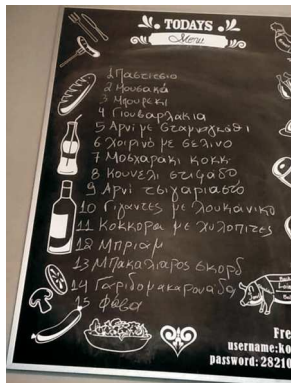 TODAYS
Menu
1 Παστιτσιο
2 Μουσακά
3 Μπουρεκι
4 Γιουβαρλακια
5 Αρνί με σταμναγκαθι
6 χοιρινό με σελινο
7 Μοσχαράκι κοκκ.
8 Κουνελι στιφαδο
9 Αρνί τσιγαριαστο
10 Γιγαντες με λουκάνικο
11 Κοκκορα με χυλοπιτες
12 Μπριάμ
13 Μπακαλιαρος σκορδ
14 Γαριδομακαρονάδα
15 Φάβα
Fre
username:ko
password: 28210